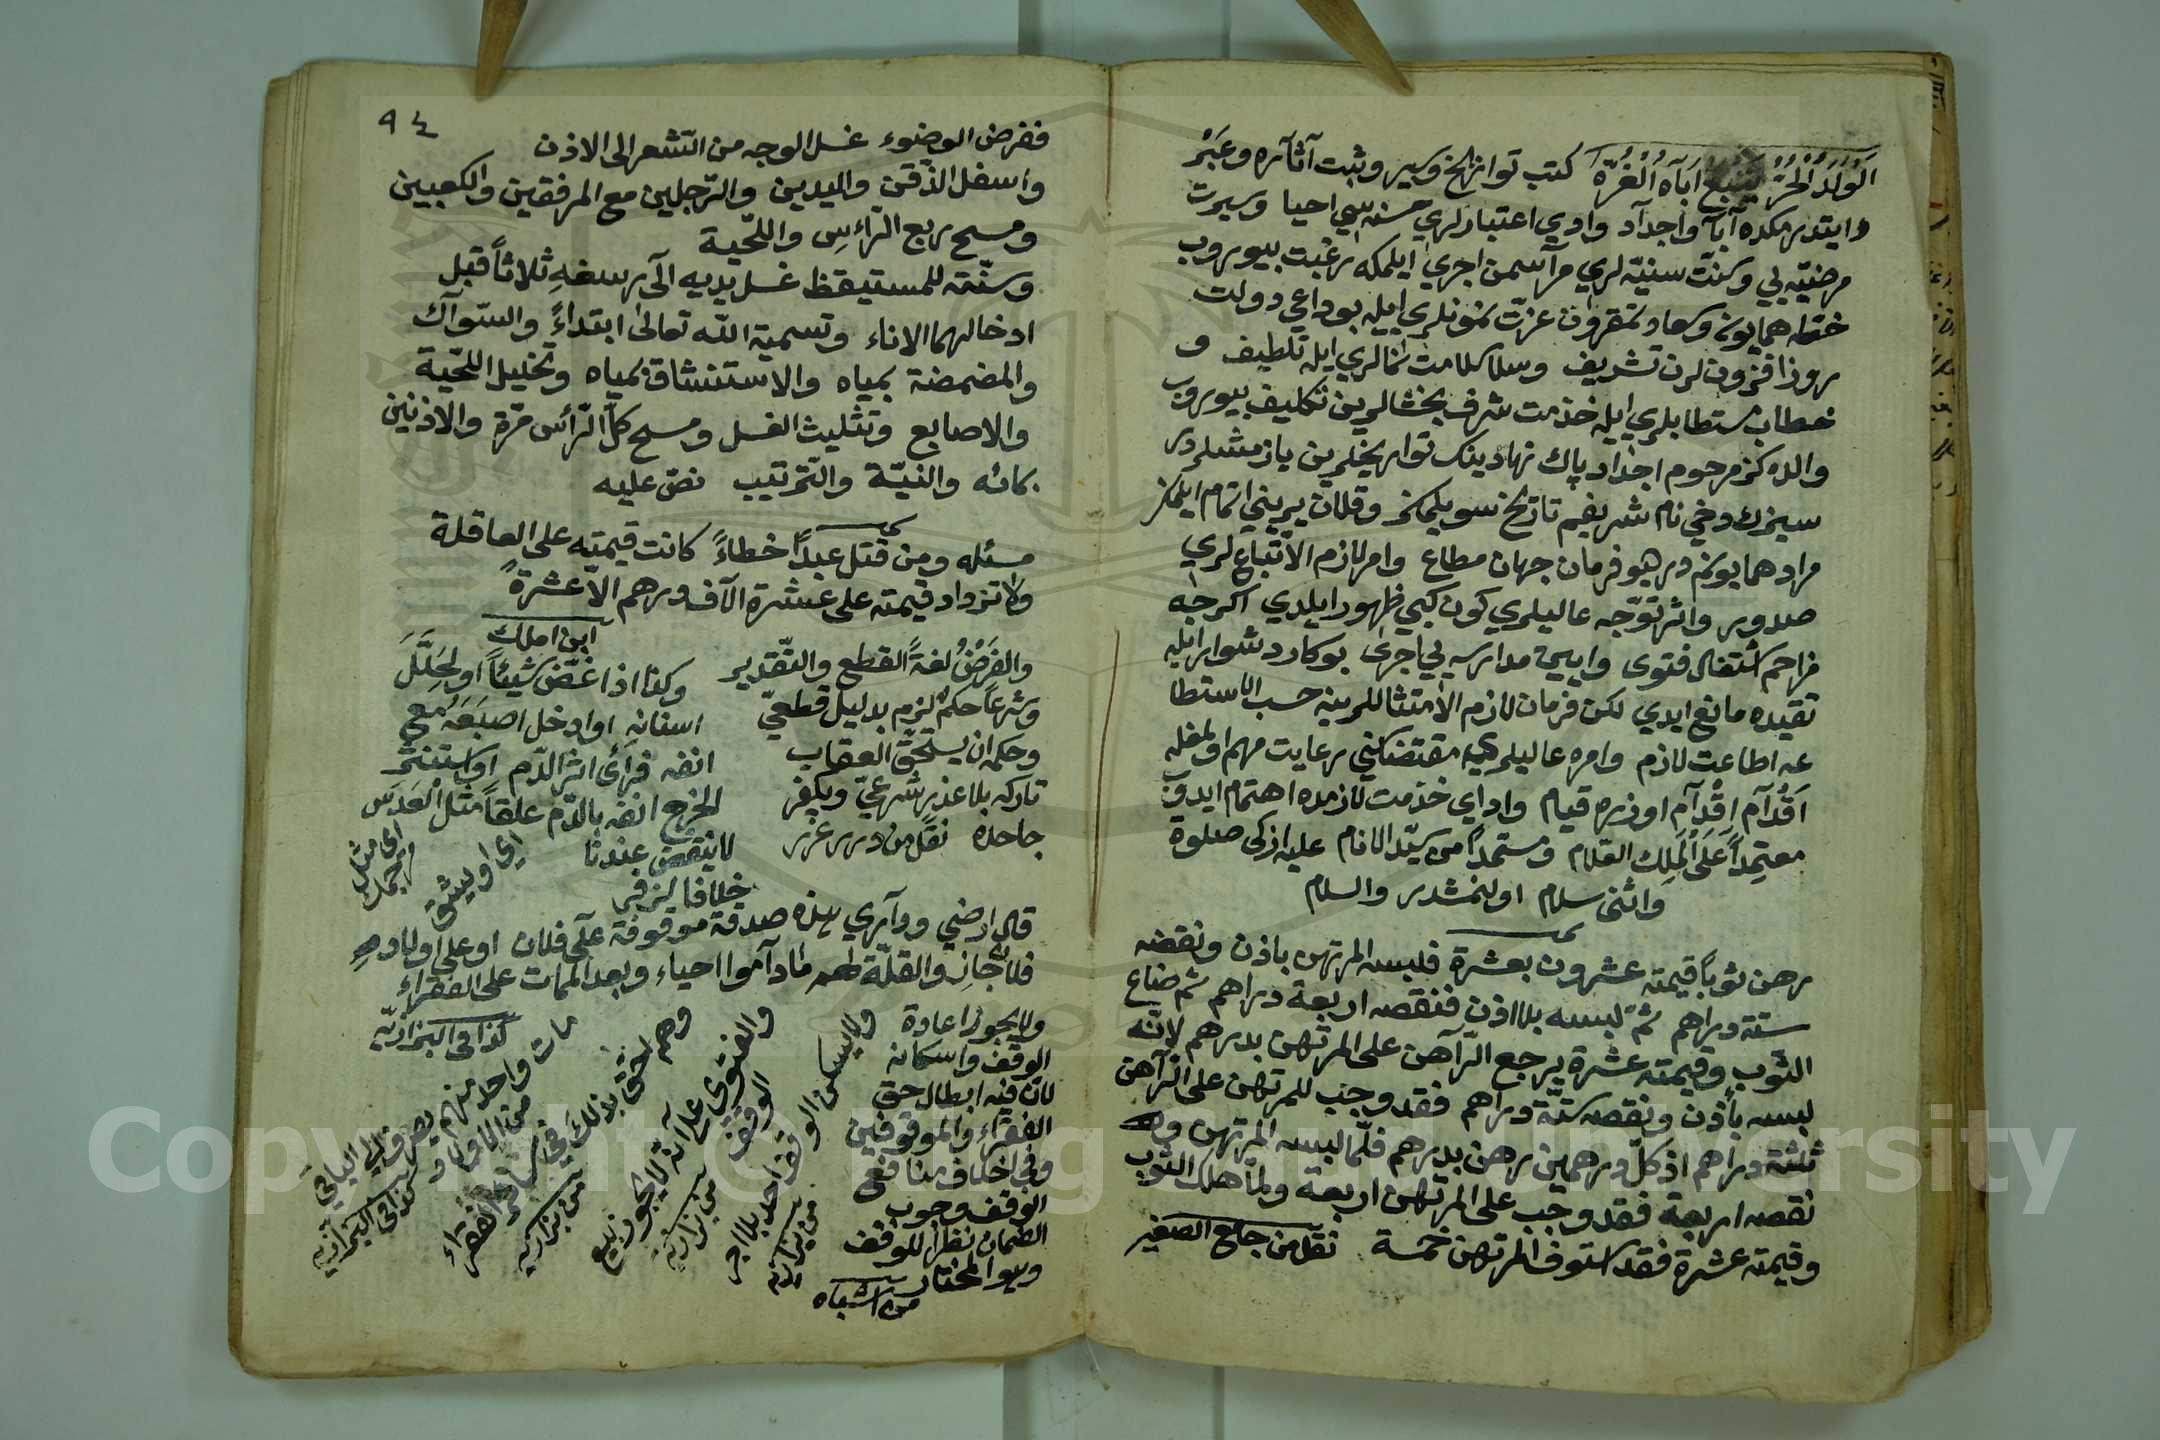 اَلْوَلَدُ الْحُرُّ يَتْبَعُ اَبَاهُ الْغُرَّةَ كتب تواريخ وسير وثبت آثار وعبر
وايتدرمكده آباء واجداد وادي اعتبارلري حسنه سي احيا وسيرت
مرضيّه لي وسنّت سنيّه لري مراسمن اجرا ايلمكه رغبت بيوروب
خط همايون وسعادتمقرون عزت نمونلري ايله بو داعي دولت
روز افزونلرن تشريف وسلام سلامت انمالري ايله تلطيف و
خطاب مستطابلري ايله خدمت شرف بخشالرين تكليف بيوروب
والده كز مرحوم اجداد پاك نهادينك تواريخلرين يازمشلردر
سيزك دخي نام شريفم تاريخ سويلمكز وقلان يريني اتمام ايلمكز
مراد همايونم در ديو فرمان جهان مطاع وامر لازم الاتباعلري
صدور واثر توجه عاليلري كون كبي ظهور ايلدي اكرچه
مزاحم اشتغال فتوى وابيحه مدارسه يي اجرى بوكار دشوار ايله
تقيده مانع ايدي لكن فرمان لازم الامتثاللرينه حسب الاستطا
عه اطاعت لازم وامره عاليلريه مقتضاسني رعايت مهم اولمغله
اَقْدَام اِقْدَام اوزره قيام واداي خدمت لازمده اهتمام ايدوب
معتمداً عَلَى الْمَلِك العلام ومستمداً من سيّد الانام عليه ازكى صلوة
واثنى سلام اولنمشدر والسلام
رهن ثوباً قيمته عشرون بعشرة فلبسه المرتهن باذن ونقصه
ستة دراهم ثمّ لبسه بلا اذن فنقصه اربعة دراهم ثم ضاع
الثوب وقيمته عشرة يرجع الرّاهن على المرتهن بدرهم لانّه
لبسه باذن ونقصه ستّة دراهم فقد وجب للمرتهن على الرّاهن
ثلثة دراهم اذ كلّ درهمين رهن بدرهم فلمّا لبسه المرتهن و
نقصه اربعة فقد وجب على المرتهن اربعة ولمّا هلك الثوب
وقيمته عشرة فقد استوفى المرتهن خمسة نقل من جامع الصغير
٩٤
ففرض الوضوء غسل الوجه من الشعر الى الاذن
واسفل الذّقن واليدين والرّجلين مع المرفقين والكعبين
ومسح ربع الرّأسِ واللّحية
وسنّته للمستيقظ غسل يديه الى رسغيهِ ثلاثاً قبل
ادخالهما الاناء وتسمية الله تعالى ابتداءً والسّواك
والمضمضة بمياه والاستنشاق بمياه وتخليل اللّحية
والاصابع وتثليث الغسل ومسح كلّ الرّأس مرّة والاذنين
بمائه والنيّة والتّرتيب نصّ عليه
مسئله ومن قتل عبداً خطاءً كانت قيمته على العاقلة
ولا تزداد قيمته على عشرة الآف درهم الاّ عشرةً
ابن املك
والفَرْضُ لغةً القطع والتّقدير
وشرعاً حكمٌ لزم بدليل قطعيّ
وحكمه ان يستحقّ العقاب
تاركه بلا عذر شرعيّ ويكفر
جاحده نقل من درر غرر
وكذا اذا عَضَّ شيئاً او تخلّلَ
اسنانه او ادخل اصبَعَهُ في
انفه فرأى اثر الدّم او استنثر
فخرج انفه بالدّم علقاً مثل العَدَس
لا ينتقض عندنا
خلافا لزفر
قال ارضي ودآري هذه صدقة موقوفة على فلان او على اولاده
فلان جاز والغلّة لهم ما دآموا احياء وبعد الممات على الفقراء
كذا في البزازيّه
ولا يجوز اعادة
الوقف واسكانه
لانّ فيه ابطال حق
الفقراء والموقوفين
وفي اختلاف منافع
الوقف وجوب
الضّمان نظراً للوقف
وهو المختار
من اشباه
ولا يسكن الوقف احد بلا اجر
من بزازيه
والفتوى على انّه لا يجوز بيع
الوقف
من بزازيّه
وهم احق بذلك من سائر الفقراء
من بزازيه
مات واحد منهم يصرف الى الباقي
من الاولاد
كذا في البزازيه